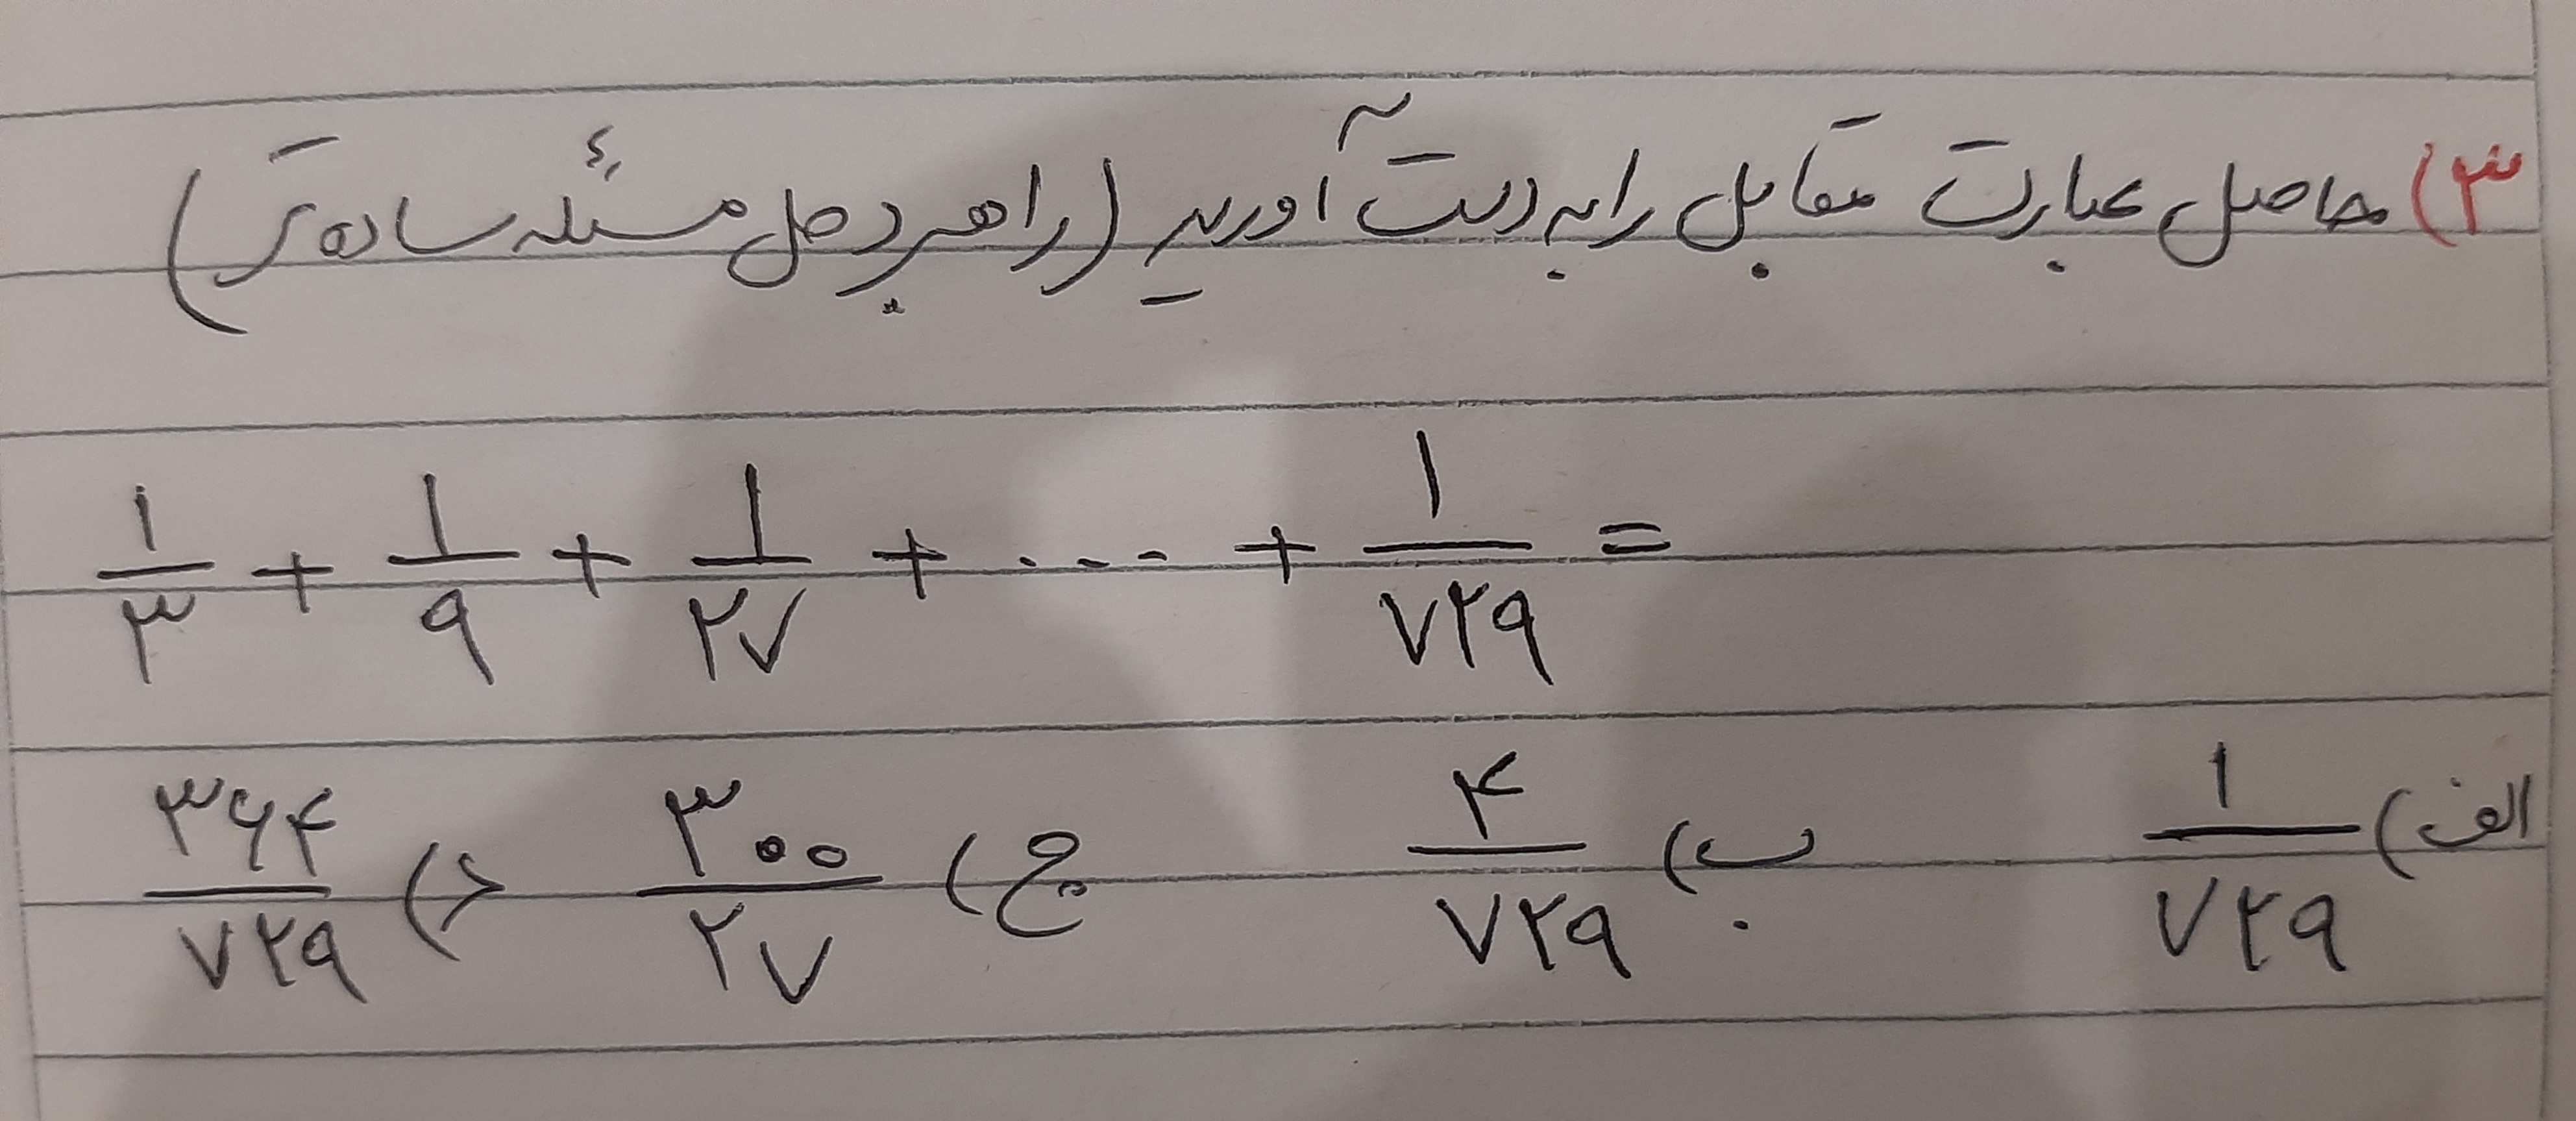 ۳) حاصل عبارت مقابل را به دست آورید (راهبرد حل مسئله ساده تر)
۱/۳ + ۱/۹ + ۱/۲۷ + ... + ۱/۷۲۹ =
الف) ۱/۷۲۹ ب) ۴/۷۲۹ ج) ۳۰۰/۲۷ د) ۳۶۴/۷۲۹